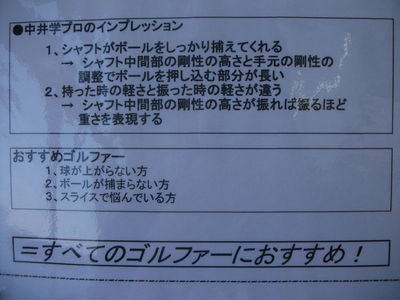 ●中井学プロのインプレッション
1、シャフトがボールをしっかり捕えてくれる
→ シャフト中間部の剛性の高さと手元の剛性の
調整でボールを押し込む部分が長い
2、持った時の軽さと振った時の軽さが違う
→ シャフト中間部の剛性の高さが振れば振るほど
重さを表現する
おすすめゴルファー
1、球が上がらない方
2、ボールが捕まらない方
3、スライスで悩んでいる方
＝すべてのゴルファーにおすすめ！